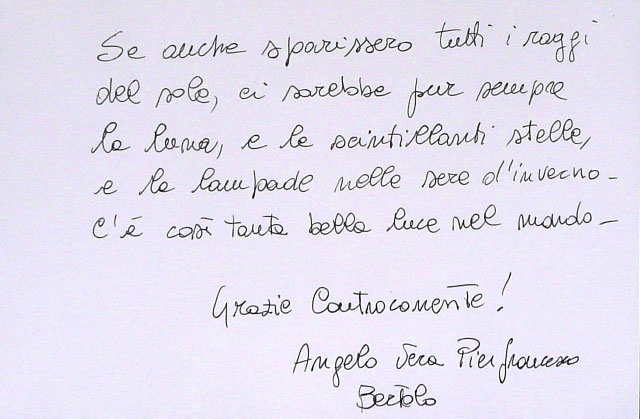 Se anche sparissero tutti i raggi
del sole, ci sarebbe pur sempre
la luna, e le scintillanti stelle,
e la lampade nelle sere d'inverno -
C'è così tanta bella luce nel mondo -
Grazie Controcorrente!
Angelo Vera Pierfrancesco
Bertolo